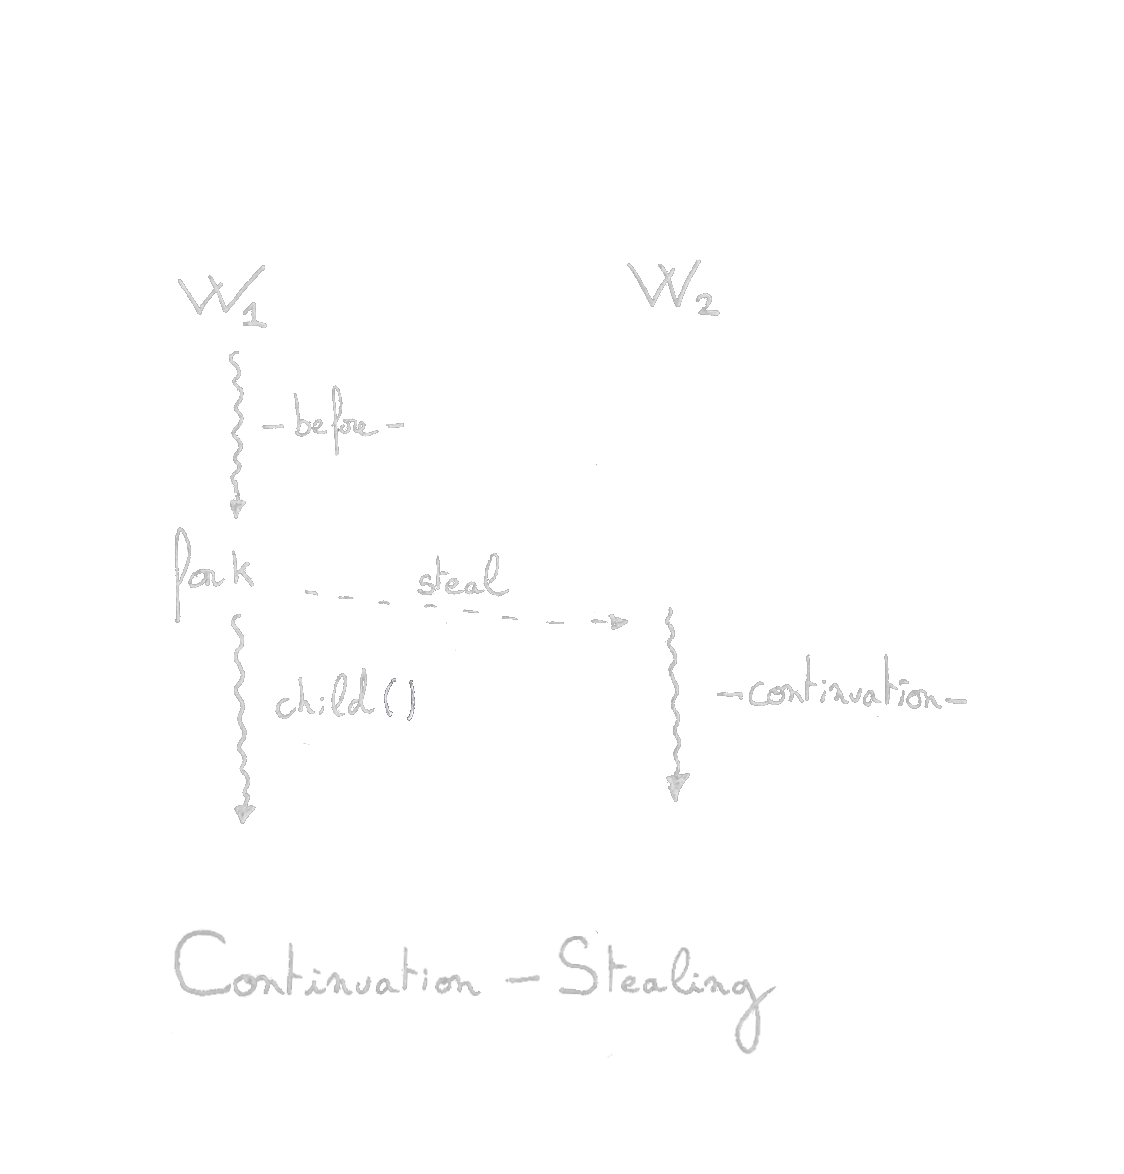 W1 W2
-before-
fork
steal
child()
-continuation-
Continuation - Stealing